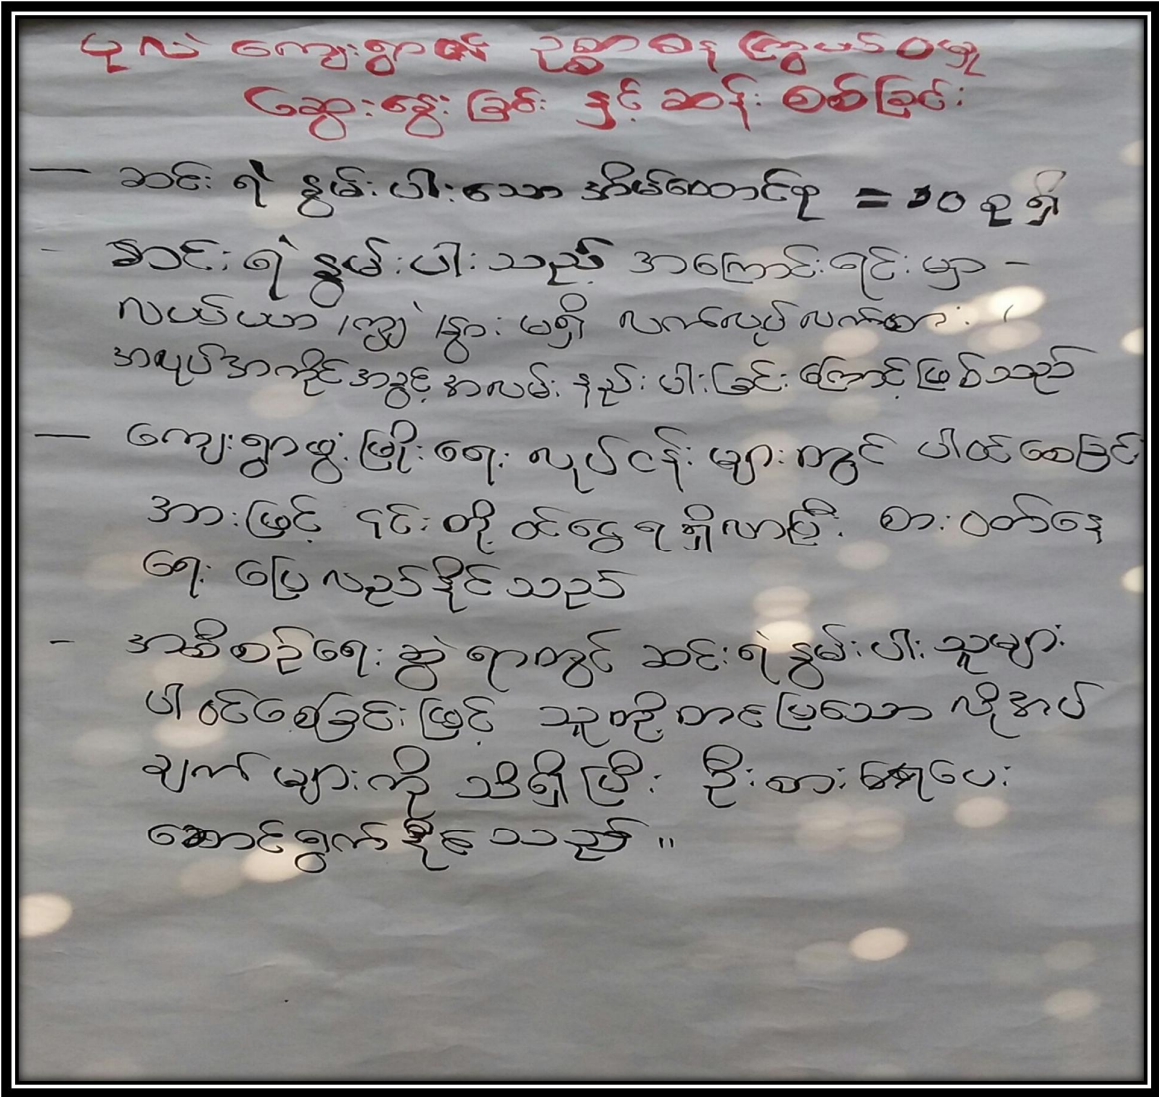 ပုလဲ ကျေးရွာ၏ ဥစ္စာဓန ကြွယ်ဝမှု
ဆွေးနွေးခြင်း နှင့် ဆန်းစစ်ခြင်း
— ဆင်းရဲ နွမ်းပါးသော အိမ်ထောင်စု = ၁၀ စုရှိ
- ဆင်းရဲ နွမ်းပါးသည့် အကြောင်းရင်းမှာ -
လယ်ယာ/ကျွဲ/နွား မရှိ လက်လုပ်လက်စား၊
အလုပ်အကိုင်အခွင့်အလမ်း နည်းပါးခြင်းကြောင့်ဖြစ်သည်
— ကျေးရွာဖွံ့ဖြိုးရေး လုပ်ငန်းများတွင် ပါဝင်စေခြင်း
အားဖြင့် ၎င်းတို့ ဝင်ငွေ ရရှိလာပြီး စားဝတ်နေ
ရေး ပြေလည်နိုင်သည်
- အစီစဉ်ရေးဆွဲရာတွင် ဆင်းရဲနွမ်းပါးသူများ
ပါဝင်စေခြင်းဖြင့် သူတို့တင်ပြသော လိုအပ်
ချက်များကို သိရှိပြီး ဦးစားပေး
ဆောင်ရွက်နိုင်သည်။